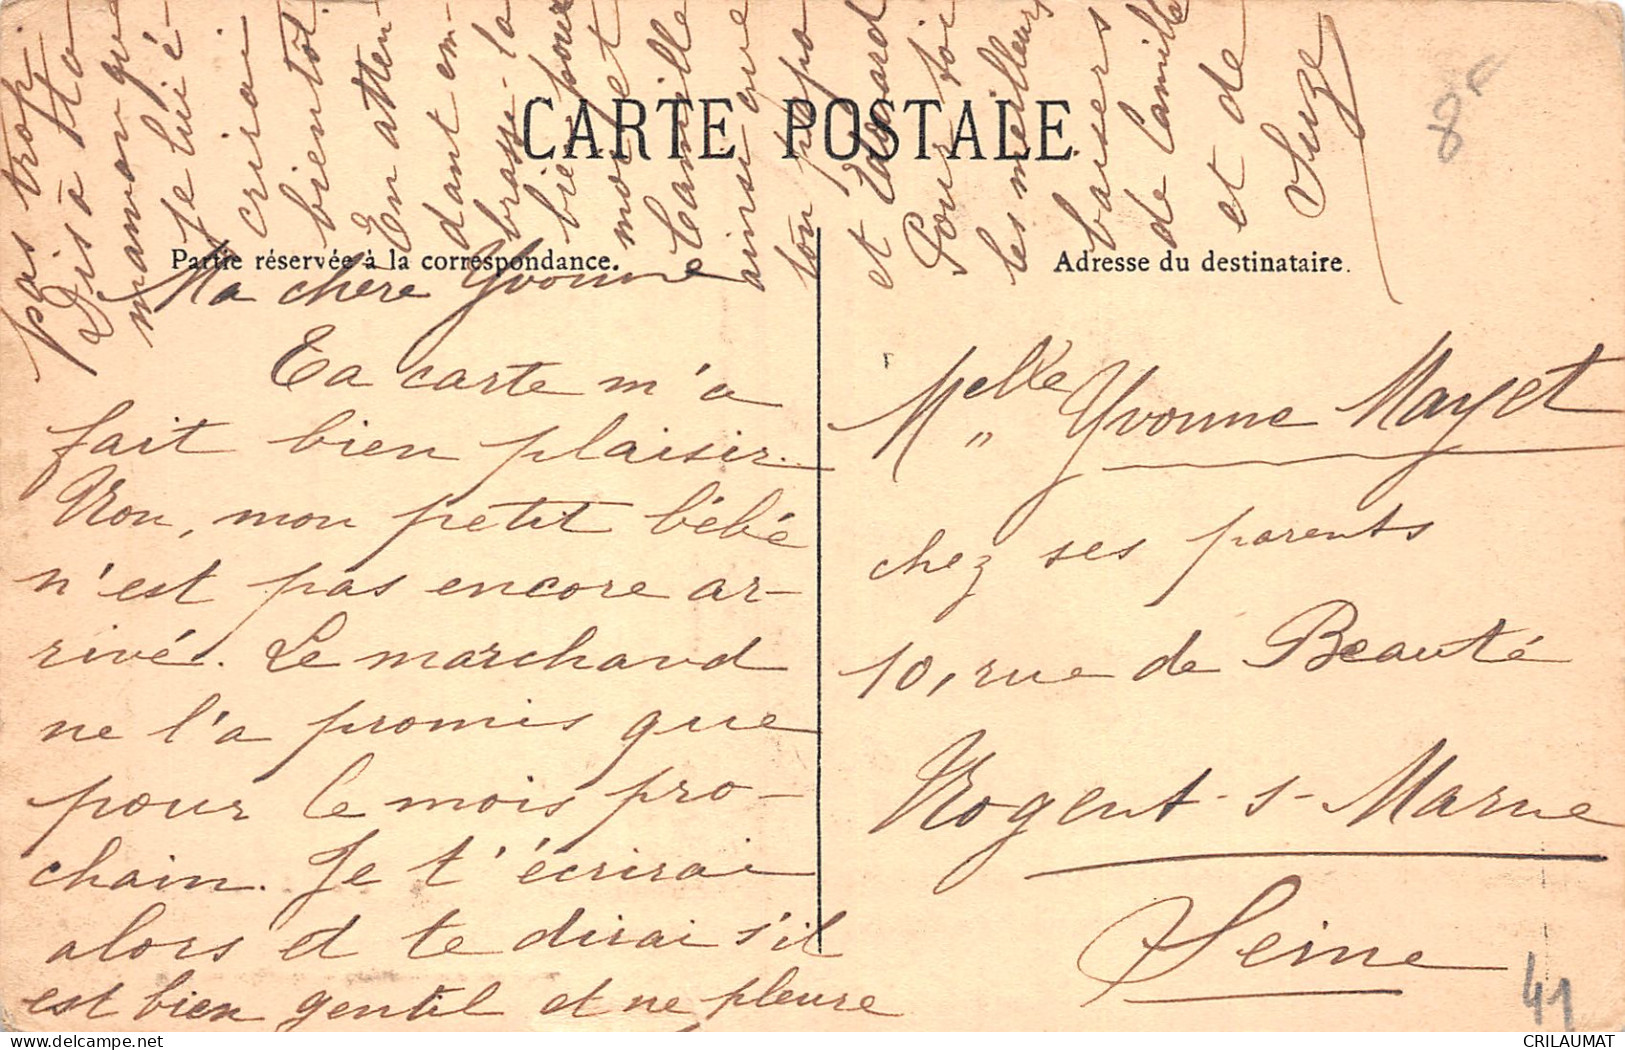 CARTE POSTALE
Partie réservée à la correspondance.
Adresse du destinataire.
Ma chère Yvonne
Ta carte m'a
fait bien plaisir.
Non, mon petit bébé
n'est pas encore ar-
rivé. Le marchand
ne l'a promis que
pour le mois pro-
chain. Je t'écrirai
alors et te dirai s'il
est bien gentil et ne pleure
pas trop.
Dis à ta
maman que
je lui é-
crirai
bientôt.
En atten-
dant em-
brasse-la
bien pour
moi et
Camille
ainsi que
ton papa
et Edouard
Pour toi
les meilleurs
baisers
de Camille
et de
Suze
Melle Yvonne Mayet
chez ses parents
10, rue de Beauté
Nogent-s-Marne
Seine
8F
41
CRILAUMAT